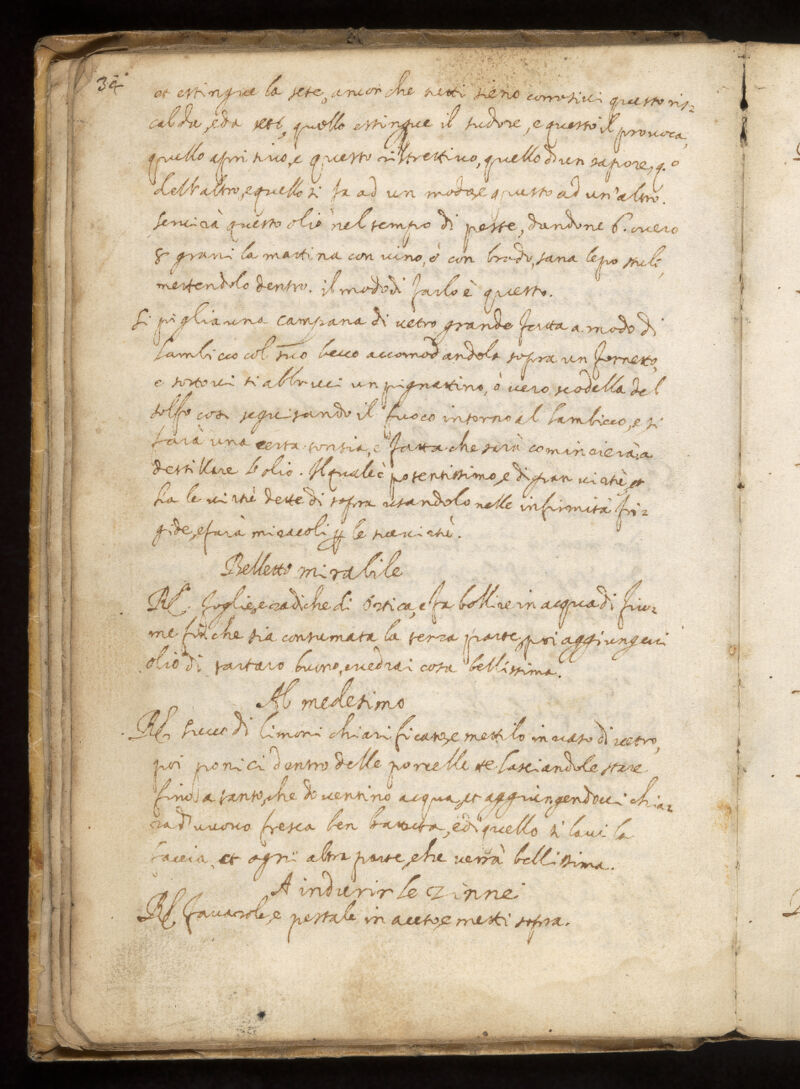 34
et estingue la sete, ancor che tutti sieno corrosivi questo ris=
calda, e da sete, quello estingue il sudore, e questo il provoca,
quello apritivo, e questo ristrettivo, quello d'un sapore, q.o
dell'altro, e quello si fa ad un modo, e questo ad un'altro.
Servirà questo olio nel tempo di peste, dandone 6. overo
8 grani la mattina con vino, ò con brodo, sana le
mettendolo dentro. il modo di farlo è questo.
Si piglia una campana di vetro grande fatta a modo di
lambicco col suo becco accomodandola sopra un fornetto,
e sotto vi si abbruci un pignattino, ò vero scodella del
solfo così seguitando il fuoco intorno al lambicco, e si
farà una certa, e fatta che sarà comincierà a
destillare l'olio. Il quale è potentissimo, e di gran virtù, et
ha le virtù dette di sopra usandolo nelle infirmità fri=
gide, e farà miracoli per le sue virtù.
Belletto mirabile
R. foglie, e radiche di ortica, e fa bollire in acqua di fiu=
me finche sia consumata la terza parte, poi aggiungevi
olio di tartaro buono, e vedrai cosa bellissima.
Al medesimo
R. succo di limoni chiarificato, e mettilo in vaso di vetro,
poi ponici dentro delle porcellette lasciandole stare
fino a tanto, che doventino acqua, et aggiungendovi chia=
ra d'uuouo fresca ben battuta, e di quello si lavi la
faccia, et ogni altra parte, che verrà bellissima.
A indurir le zinne
R. e pestale in aceto, e metti sopra.